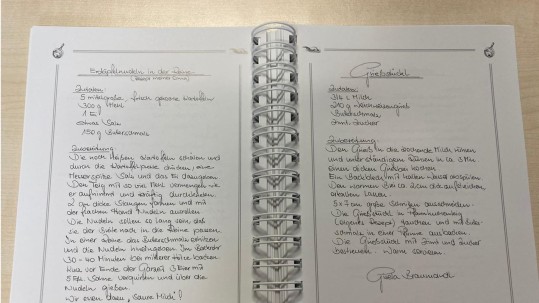 Erdäpfelnudeln in der Reine
Zutaten:
5 mittelgroße, frisch gekochte Kartoffeln
300 g Mehl
1 Ei
etwas Salz
150 g Butterschmalz
Zubereitung:
Die noch heißen Kartoffeln schälen und
durch die Kartoffelpresse drücken, eine
Messerspitze Salz und das Ei dazugeben.
Den Teig mit so viel Mehl vermengen wie
er aufnimmt und kräftig durchkneten.
2 cm dicke Stangen formen und mit
der flachen Hand Nudeln ausrollen.
Die Nudeln sollen so lang sein, daß
sie der Breite nach in die Reine passen.
In einer Reine das Butterschmalz erhitzen
und die Nudeln hineinlegen. Im Backrohr
30-40 Minuten bei mittlerer Hitze backen.
Kurz vor Ende der Garzeit 3 Eier mit
5 Eßl. Sahne verquirlen und über die
Nudeln gießen.
Wir essen dazu "saure Milch"!
Grießdückl
Zutaten:
3/4 l Milch
210 g Weichweizengrieß
Butterschmalz
Zimt, Zucker
Zubereitung:
Den Grieß in die kochende Milch rühren
und unter ständigem Rühren in ca. 3 Min
einen dicken Grießbrei kochen.
Ein Backblech mit kaltem Wasser abspülen.
Den warmen Brei ca. 2 cm dick aufstreichen,
erkalten lassen.
5 x 7 cm große Schnitten ausschneiden.
Die Grießdückl in Pfannkuchenteig
tauchen und mit Butter-
schmalz in einer Pfanne ausbacken.
Die Grießdückl mit Zimt und Zucker
bestreuen. Warm servieren.